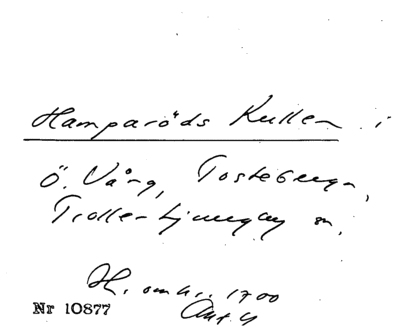 Hamparöds Kullen i
Ö. Vång, Tosteberga,
Trolle-Ljungby sn,
H. omkr. 1700
Nr 10877